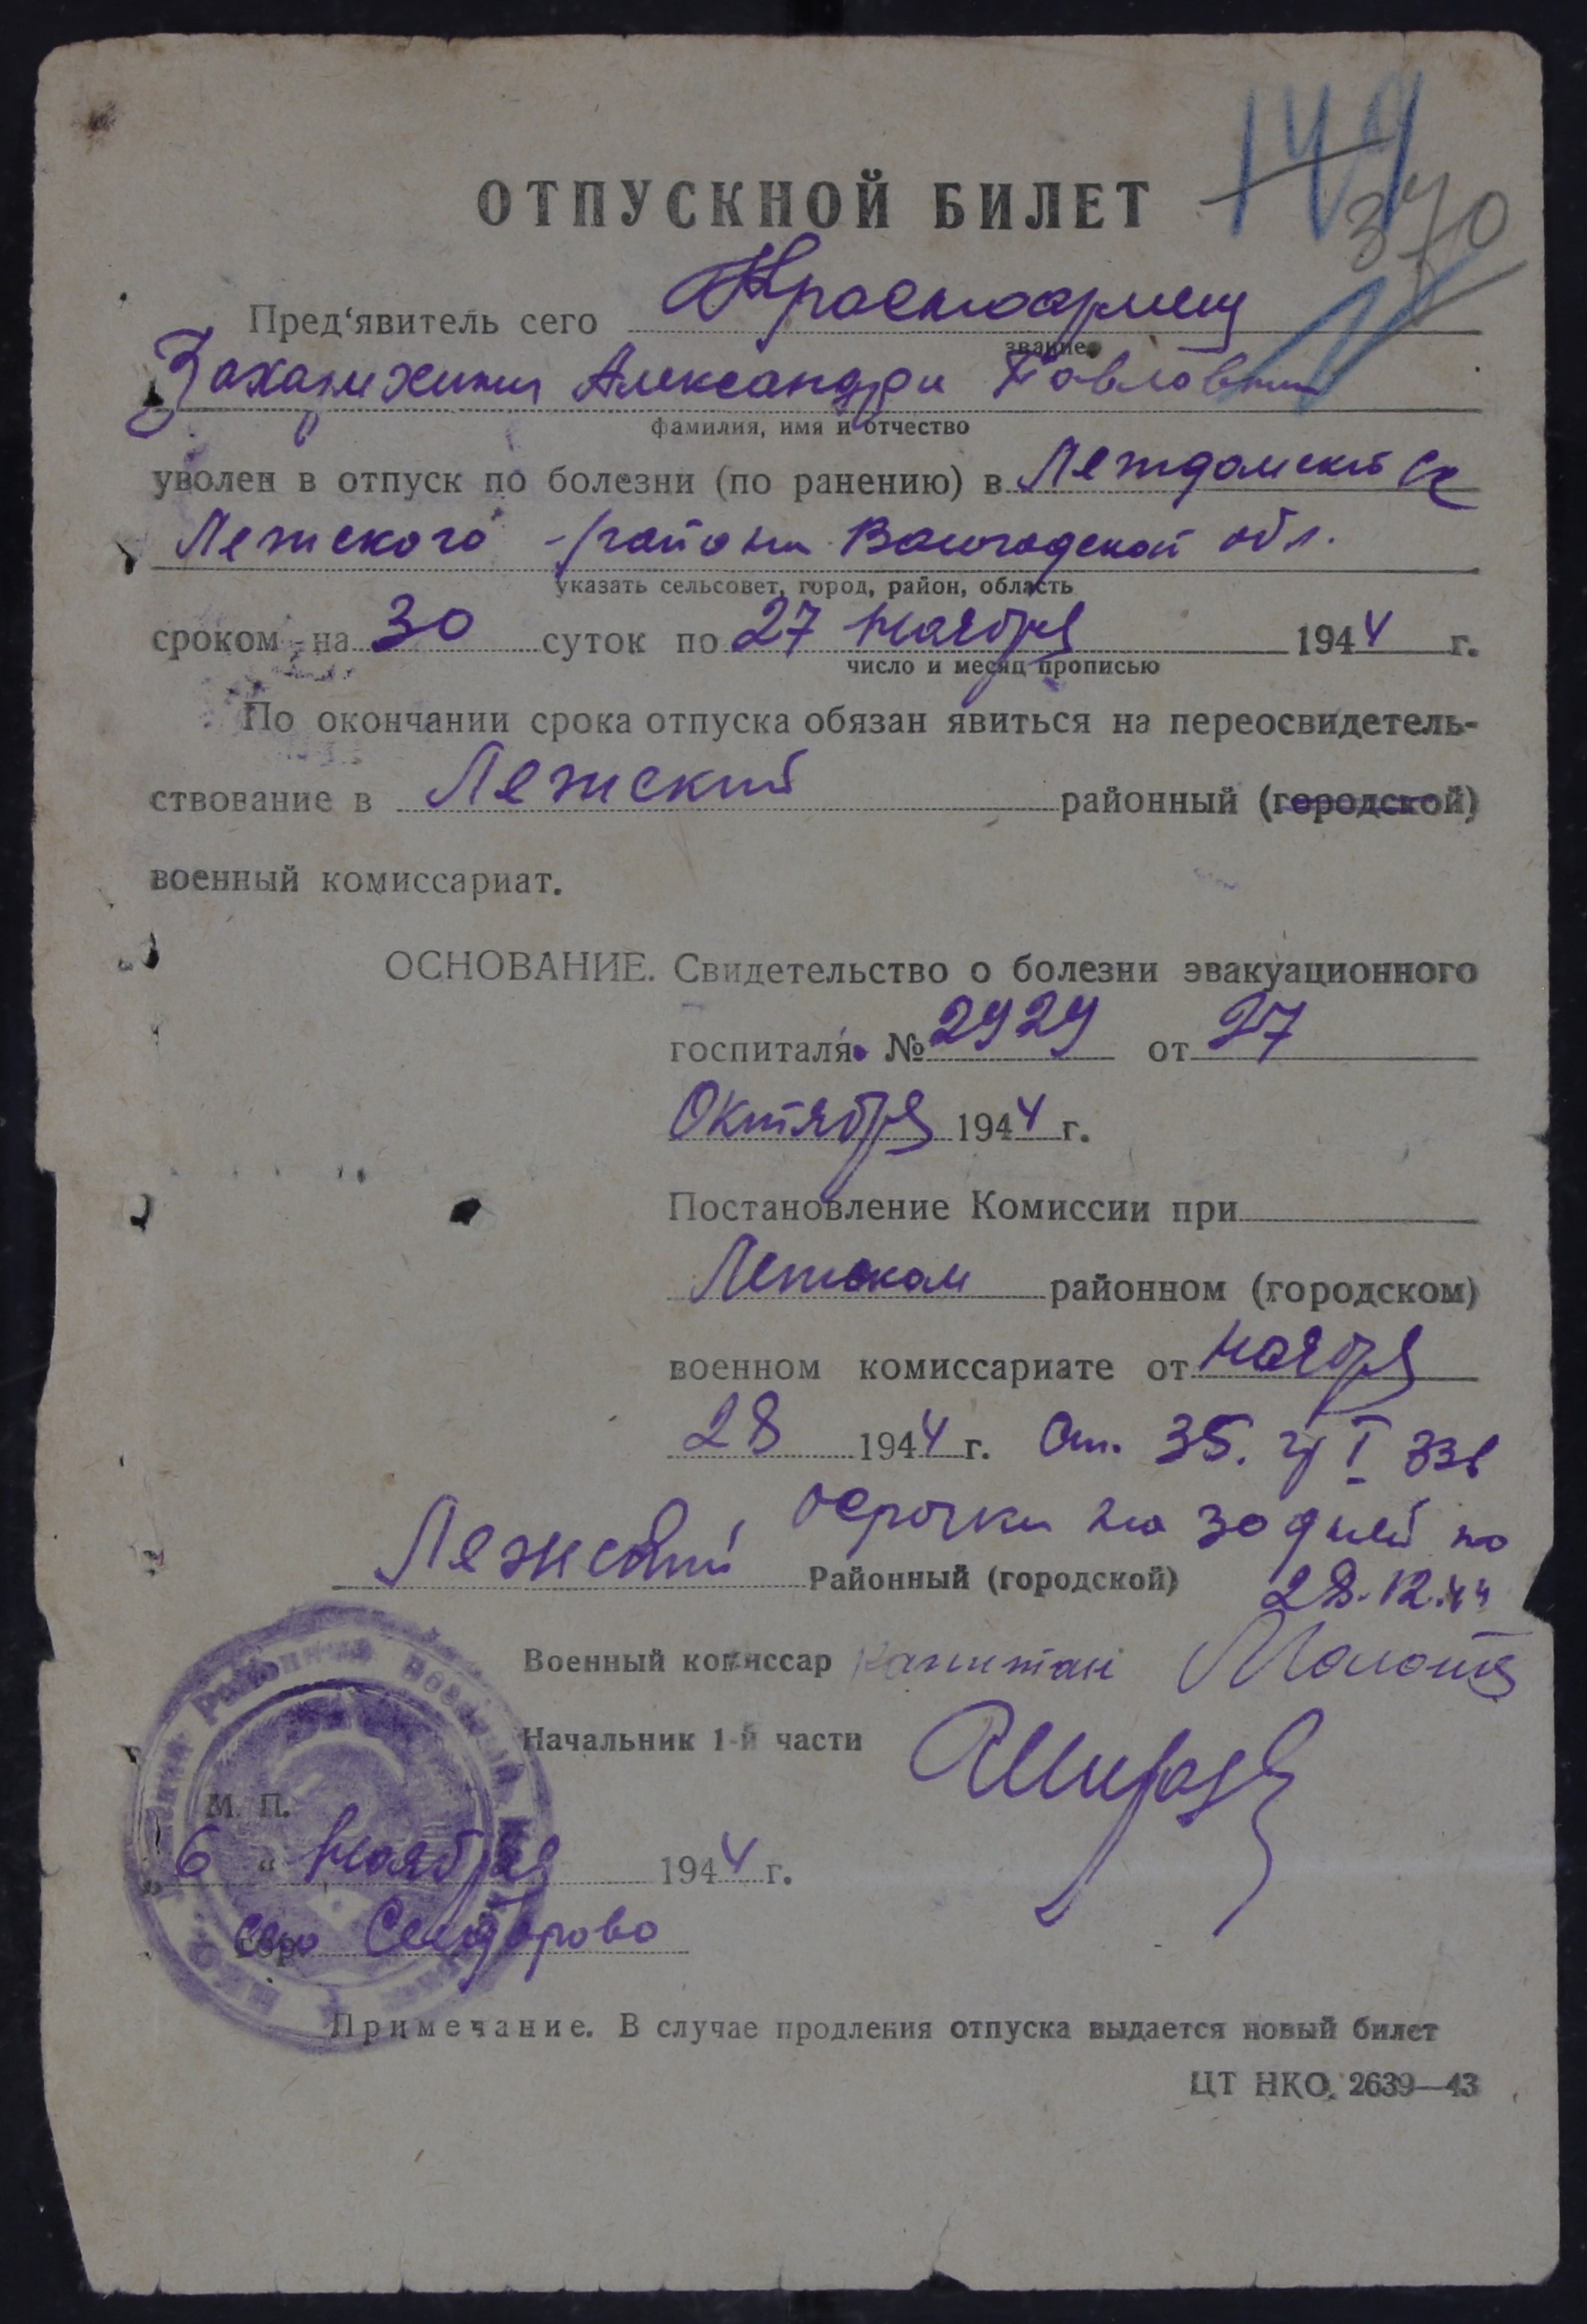 144
370
ОТПУСКНОЙ БИЛЕТ
Пред‘явитель сего Красноармеец
звание
Александра Павловна
фамилия, имя и отчество
уволен в отпуск по болезни (по ранению) в Леждомский с/с
Лежского района Вологодской обл.
указать сельсовет, город, район, область
сроком на 30 суток по 27 ноября 1944 г.
число и месяц прописью
По окончании срока отпуска обязан явиться на переосвидетель-
ствование в Лежский районный (городской)
военный комиссариат.
ОСНОВАНИЕ. Свидетельство о болезни эвакуационного
госпиталя № 2929 от 27
Октября 1944 г.
Постановление Комиссии при
Лежском районном (городском)
военном комиссариате от ноября
28 1944 г. От. 35. гр I 336
Лежский отсрочка на 30 дней по
Районный (городской) 28.12.44
Военный комиссар капитан
Начальник 1-й части
М. П.
„6“ Ноября 1944 г.
гор. село Сидорово
Примечание. В случае продления отпуска выдается новый билет
ЦТ НКО. 2639—43